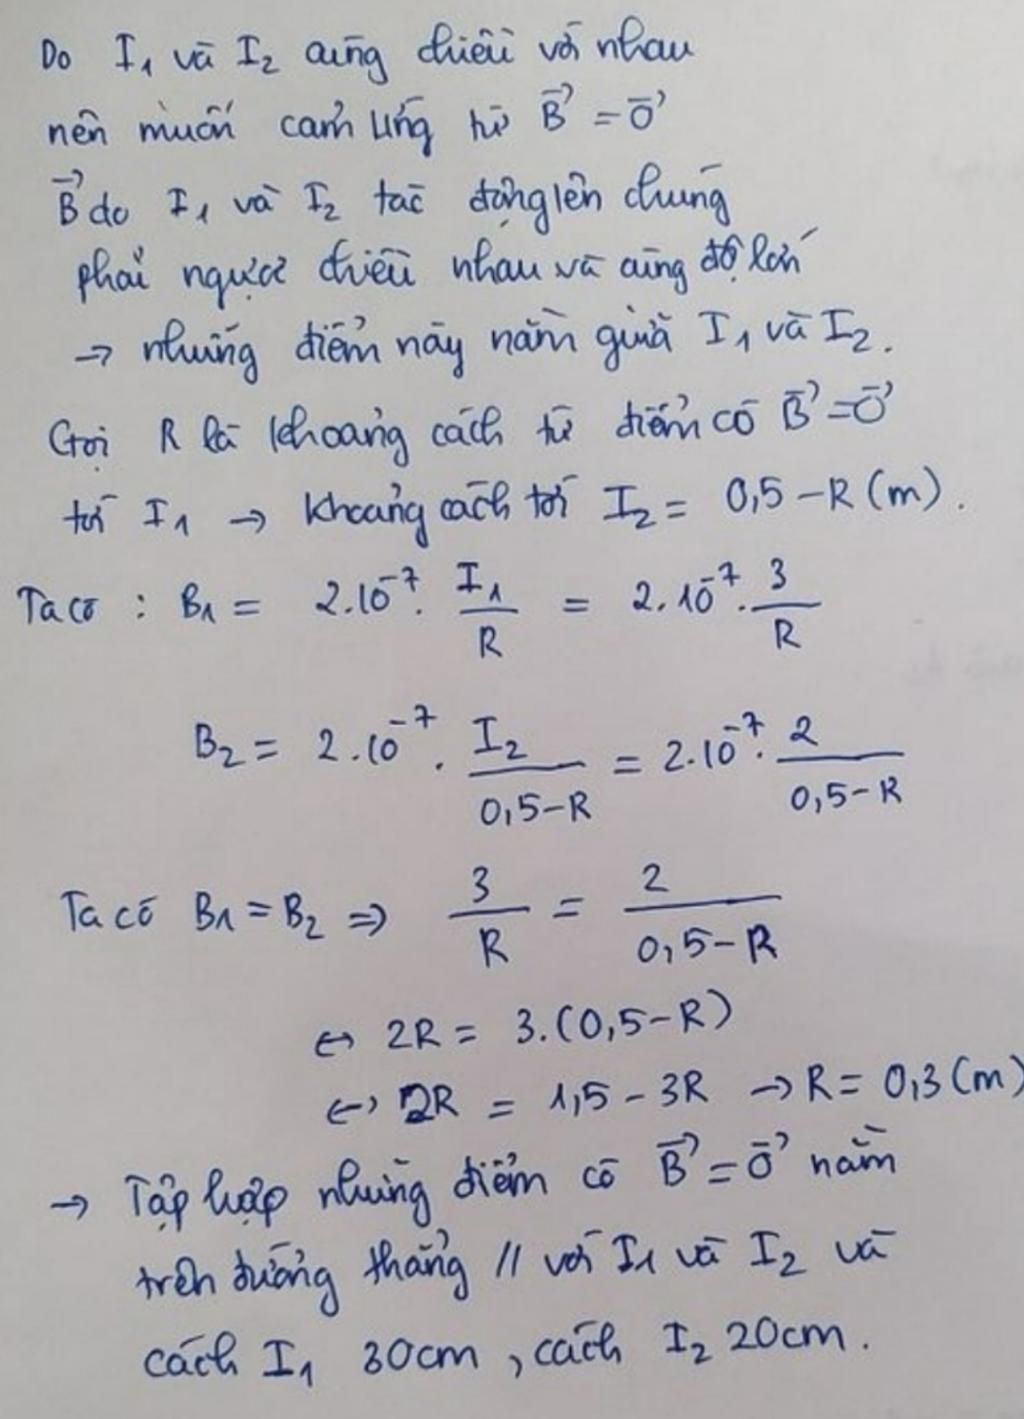 Do I₁ và I₂ cùng chiều với nhau
nên muốn cảm ứng từ B⃗ = 0⃗
B⃗ do I₁ và I₂ tác động lên chúng
phải ngược chiều nhau và cùng độ lớn
→ những điểm này nằm giữa I₁ và I₂.
Gọi R là khoảng cách từ điểm có B⃗ = 0⃗
tới I₁ → khoảng cách tới I₂ = 0,5 - R (m).
Ta có : B₁ = 2.10⁻⁷. I₁/R = 2.10⁻⁷. 3/R
B₂ = 2.10⁻⁷. I₂/(0,5-R) = 2.10⁻⁷. 2/(0,5-R)
Ta có B₁ = B₂ => 3/R = 2/(0,5-R)
<-> 2R = 3.(0,5-R)
<-> 2R = 1,5 - 3R → R = 0,3 (m)
→ Tập hợp những điểm có B⃗ = 0⃗ nằm
trên đường thẳng // với I₁ và I₂ và
cách I₁ 30cm, cách I₂ 20cm.